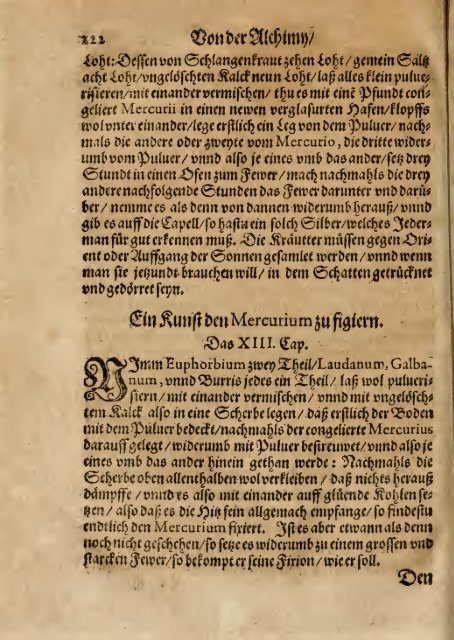 222 Von der Alchimy/
Loht: Dessen von Schlangenkraut zehen Loht/ gemein Saltz
acht Loht/ vngelöschten Kalck neun Loht/ laß alles klein puluer
rifieren/ mit einander vermischen/ thu es mit eine Pfundt con
geliert Mercurii in einen newen verglasurten Hafen/ klopffs
wol vnter einander/ lege erstlich ein Leg von dem Puluer/ nach-
mals die andere oder zweyte vom Mercurio, die dritte wider-
umb vom Puluer/ vnnd also je eines vmb das ander/ setz drey
Stundt in einen Ofen zum Fewer/ mach nachmahls die drey
andere nachfolgende Stunden das Fewer darunter vnd darü-
ber/ nemme es als denn von dannen widerumb herauß/ vnnd
gib es auff die Capell/ so hastu ein solch Silber/ welches Jeder-
man für gut erkennen muß. Die Kräutter müssen gegen Ori-
ent oder Auffgang der Sonnen gesamlet werden/ vnnd wenn
man sie jetzundt brauchen will/ in dem Schatten getrücknet
vnd gedörret seyn.
Ein Kunst den Mercurium zu figiern.
Das XIII. Cap.
NJmm Euphorbium zwey Theil/ Laudanum, Galba-
num, vnnd Burris jedes ein Theil/ laß wol pulueri-
siern/ mit einander vermischen/ vnnd mit vngelösch-
tem Kalck also in eine Scherbe legen/ daß erstlich der Boden
mit dem Puluer bedeckt/ nachmahls der congelierte Mercurius
darauff gelegt/ widerumb mit Puluer bestrewet/ vnnd also je
eines vmb das ander hinein gethan werde: Nachmahls die
Scherbe oben allenthalben wol verkleiben/ daß nichts herauß
dämpffe/ vnnd es also mit einander auff glüende Kohlen se-
tzen/ also daß es die Hitz fein allgemach empfange/ so findestu
endtlich den Mercurium fixiert. Ist es aber etwann als denn
noch nicht geschehen/ so setze es widerumb zu einem grossen vnd
starcken Fewer/ so bekompt er seine Fixion/ wie er soll.
Den